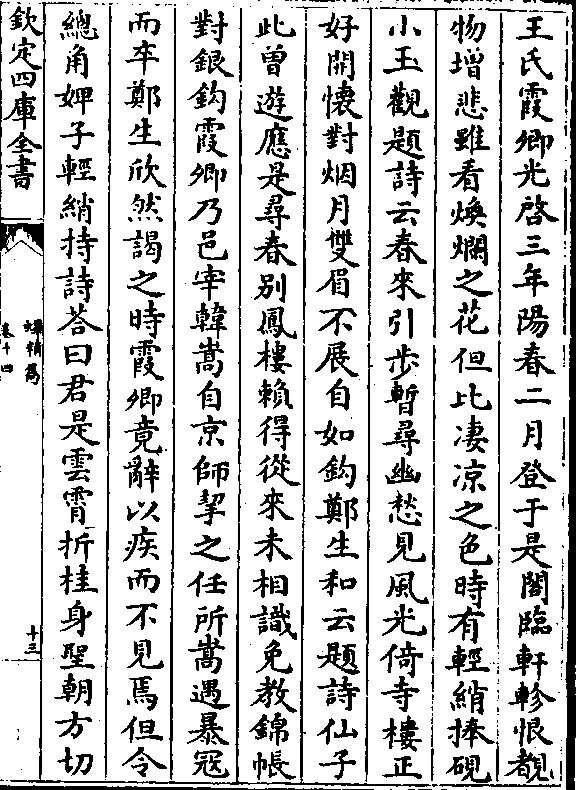 王氏霞卿光啓三年陽春二月登于是閣臨軒軫恨覩
物增悲雖看煥爛之花但比凄凉之色時有輕綃捧硯
小玉觀題詩云春來引步暫尋幽愁見風光倚寺樓正
好開懷對烟月雙眉不展自如鈎鄭生和云題詩仙子
此曾遊應是尋春别鳳樓賴得從來未相識免教錦帳
對銀鈎霞卿乃邑宰韓嵩自京師挈之任所嵩遇暴冦
而卒鄭生欣然謁之時霞卿竟辭以疾而不見焉但令
總角婢子輕綃持詩荅曰君是雲霄折桂身聖朝方切
欽定四庫全書
卷十四
十三